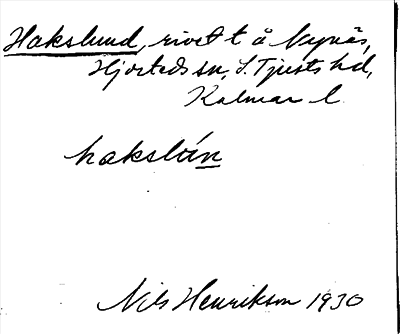 Hakslund, rivet t å Nynäs,
Hjorteds sn, S. Tjusts hd,
Kalmar l.
hakslún
Nils Henrikson 1930